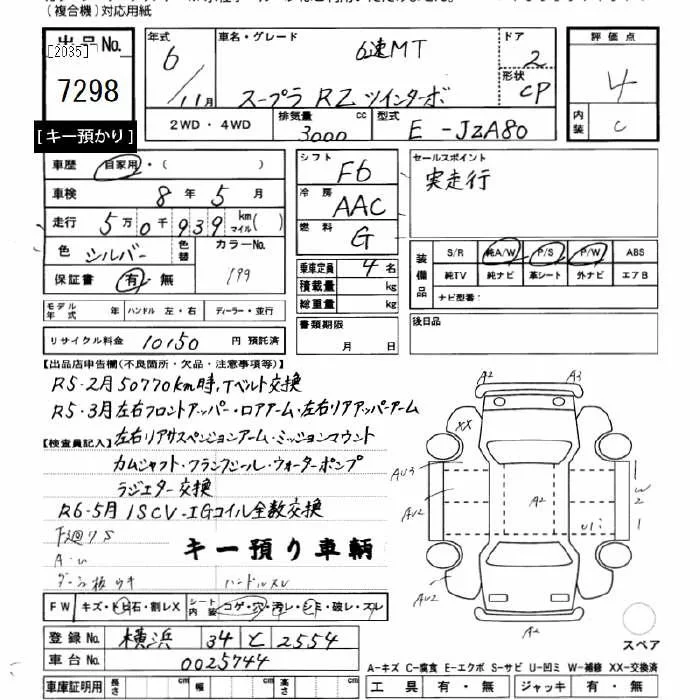 (複合機)対応用紙
出品No.
[2035]
7298
[キー預かり]
年式 車名・グレード ドア 評価点
6 6速MT 2 4
11月 スープラ RZ ツインターボ 形状 CP
2WD・4WD 排気量 3000 cc 型式 E-JZA80 内装 C
車歴 自家用・( )
シフト F6
セールスポイント
実走行
車検 8年5月
冷房 AAC
走行 5万0千939 km マイル( )
燃料 G
色 シルバー 色替 カラーNo. 199
保証書 有・無
乗車定員 4名
積載量 kg
総重量 kg
装備品 S/R 純A/W P/S P/W ABS
純TV 純ナビ 革シート 外ナビ エアB
ナビ型番:
モデル年式 年 ハンドル 左・右 ディーラー・並行
書類期限 月 日
後日品
リサイクル料金 10150円 預託済
【出品店申告欄(不良箇所・欠品・注意事項等)】
R5-2月50770km時、Tベルト交換
R5-3月左右フロントアッパー・ロアアーム・左右リアアッパーアーム
【検査員記入】 左右リアサスペンションアーム・ミッションマウント
カムシャフト・クランクシール・ウォーターポンプ
ラジエター交換
R6-5月 ISCV-IGコイル全数交換
下廻りS
キー預り車輌
ハンドルスレ
FW キズ・トビ石・割レX シート内装 コゲ・穴・汚レ・シミ・破レ・スレ
登録No. 横浜 34 と 2554
車台No. 0025744
車庫証明用 長さ cm 幅 cm 高さ cm
A2 A3
XX
AU3
AU2
A2
W2
U1
AU2
A2
スペア
A-キズ C-腐食 E-エクボ S-サビ U-凹ミ W-補修 XX-交換済
工具 有・無 ジャッキ 有・無